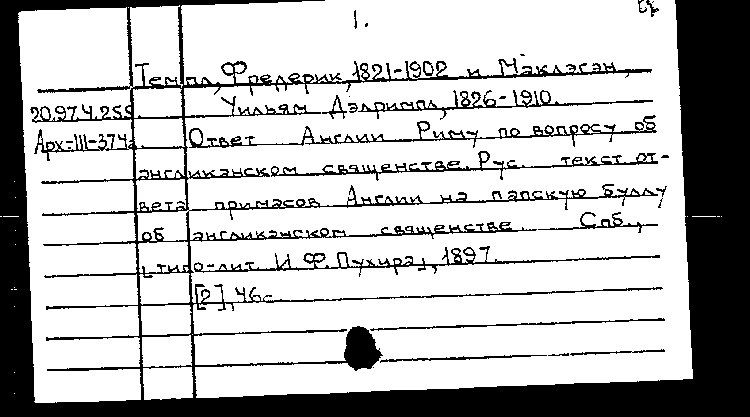 1.
Темпл, Фредерик, 1821-1902 и Маклэган,
20.97.4.255. Уильям Дэлримпл, 1826-1910.
Арх=III-374а. Ответ Англии Риму по вопросу об
англиканском священстве. Рус. текст от-
вета примасов Англии на папскую буллу
об англиканском священстве. Спб.,
[типо-лит. И.Ф. Пухира], 1897.
[2], 46с.